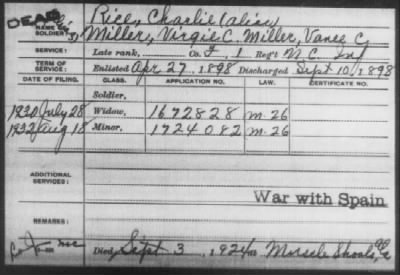 DEAD
NAME OF SOLDIER: Rice, Charlie (alias)
Miller, Virgie C. Miller, Vance C.
SERVICE: Late rank, Co. F, 1 Reg't N.C. Inf
TERM OF SERVICE: Enlisted Apr 27, 1898 Discharged Sept 10, 1898
DATE OF FILING. CLASS. APPLICATION NO. LAW. CERTIFICATE NO.
Soldier,
1930 July 28 Widow, 1672828 M-26
1932 Aug 18 Minor, 1724082 M-26
ADDITIONAL SERVICES:
War with Spain
REMARKS:
Died Sept 3, 1924 at Muscle Shoals, Ala